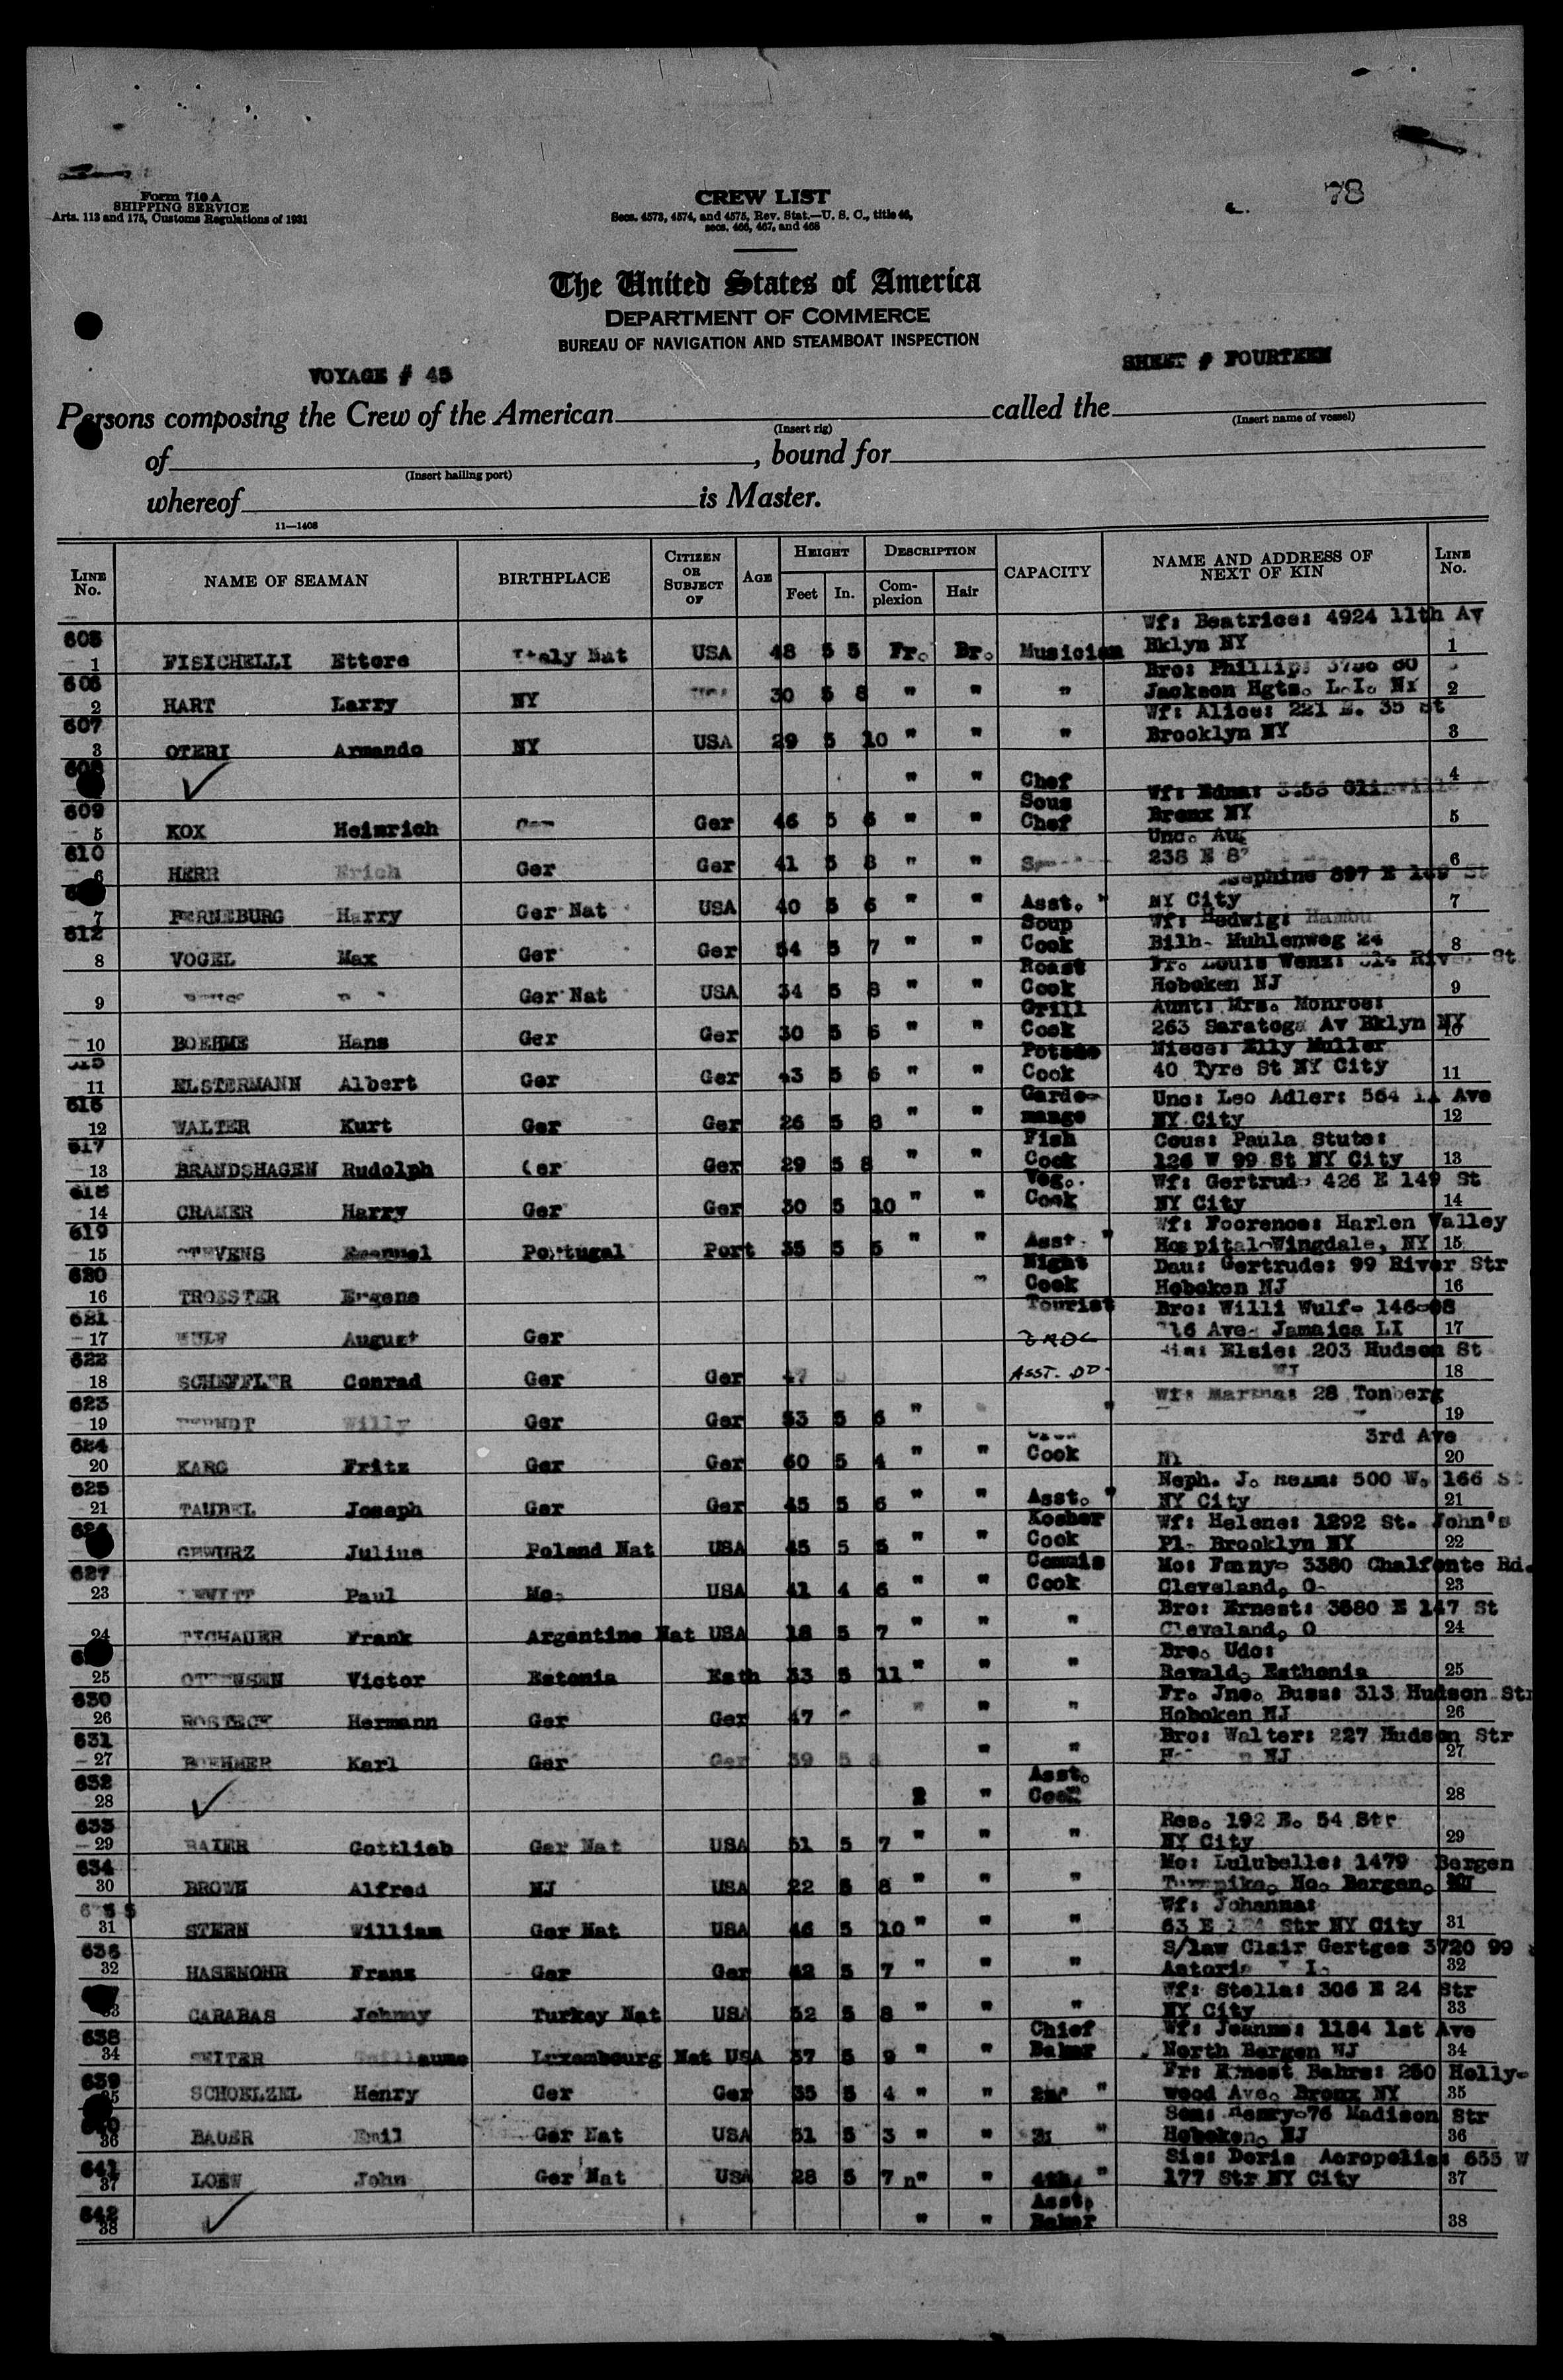 78
Form 710 A
SHIPPING SERVICE
Arts. 113 and 175, Customs Regulations of 1931
CREW LIST
Secs. 4573, 4574, and 4575, Rev. Stat.—U. S. C., title 46,
secs. 466, 467, and 468
The United States of America
DEPARTMENT OF COMMERCE
BUREAU OF NAVIGATION AND STEAMBOAT INSPECTION
VOYAGE # 45
SHEET # FOURTEEN
Persons composing the Crew of the American called the
(Insert rig) (Insert name of vessel)
of , bound for
(Insert hailing port)
whereof is Master.
11—1408
LINE No. NAME OF SEAMAN BIRTHPLACE CITIZEN OR SUBJECT OF AGE HEIGHT Feet In. DESCRIPTION Complexion Hair CAPACITY NAME AND ADDRESS OF NEXT OF KIN LINE No.
Wf: Beatrice: 4924 11th Av
605 1 FISICHELLI Ettore Italy Nat USA 48 5 5 Fr. Br. Musician Bklyn NY 1
Bro: Phillip:
606 2 HART Larry NY 30 5 8 " " " Jackson Hgts. L.I. NY 2
Wf: Alice: 221 E. 35 St
607 3 OTERI Armando NY USA 29 5 10 " " " Brooklyn NY 3
608 ✓ " " Chef 4
Sous Wf: Edna:
609 5 KOX Heinrich Ger 46 5 6 " " Chef Bronx NY 5
Unc. Aug
610 6 HERR Erich Ger Ger 41 5 8 " " 238 E 6
Josephine 897 E 169 St
7 FERNEBURG Harry Ger Nat USA 40 5 6 " " Asst. " NY City 7
Soup Wf: Hedwig:
612 8 VOGEL Max Ger Ger 54 5 7 " " Cook Bilh- Muhlenweg 24 8
Roast Fr. Louis Wenz: 514 River St
9 Ger Nat USA 34 5 8 " " Cook Hoboken NJ 9
Grill Aunt: Mrs. Monroe:
10 BOEHME Hans Ger Ger 30 5 6 " " Cook 263 Saratoga Av Bklyn NY 10
Potato Niece: Elly Muller
615 11 ELSTERMANN Albert Ger Ger 43 5 6 " " Cook 40 Tyre St NY City 11
Garde- Unc: Leo Adler: 564 Ave
616 12 WALTER Kurt Ger Ger 26 5 8 " " mange NY City 12
Fish Cous: Paula Stute:
617 13 BRANDSHAGEN Rudolph Ger Ger 29 5 8 " " Cook 126 W 99 St NY City 13
Veg. Wf: Gertrude 426 E 149 St
618 14 CRAMER Harry Ger Ger 30 5 10 " " Cook NY City 14
Wf: Foorence: Harlen Valley
619 15 STEVENS Emanuel Portugal Port 35 5 5 " " Asst. " Hospital-Wingdale, NY 15
Night Dau: Gertrude: 99 River Str
620 16 TROESTER Eugene " Cook Hoboken NJ 16
Tourist Bro: Willi Wulf- 146-08
621 17 WULF August Ger 116 Ave- Jamaica LI 17
Sis: Elsie: 203 Hudson St
622 18 SCHEFFLER Conrad Ger Ger 47 ASST. NJ 18
Wf: Martha: 28 Tonberg
623 19 Willy Ger Ger 53 5 6 " " 19
3rd Ave
624 20 KARG Fritz Ger Ger 60 5 4 " " Cook NY 20
Neph. J. 500 W. 166 St
625 21 TAUBEL Joseph Ger Ger 45 5 6 " " Asst. " NY City 21
Kosher Wf: Helene: 1292 St. John's
22 GEWURZ Julius Poland Nat USA 45 5 5 " " Cook Pl- Brooklyn NY 22
Commis Mo: Fanny- 3380 Chalfonte Rd.
627 23 Paul Mo- USA 41 4 6 " " Cook Cleveland, O- 23
Bro: Ernest: 3580 E 147 St
24 TICHAUER Frank Argentine Nat USA 18 5 7 " " " Cleveland, O 24
Bro. Udo:
25 OTTENSEN Victor Estonia Esth 33 5 11 " " " Revald, Esthonia 25
Fr. Jno. Buss: 313 Hudson Str
630 26 ROSTECK Hermann Ger Ger 47 " " " Hoboken NJ 26
Bro: Walter: 227 Hudson Str
631 27 BOEHMER Karl Ger Ger 39 5 8 " " NJ 27
Asst.
632 28 ✓ " Cook 28
Res. 192 E. 54 Str
633 29 BAIER Gottlieb Ger Nat USA 51 5 7 " " " NY City 29
Mo: Lulubelle: 1479 Bergen
634 30 BROWN Alfred NJ USA 22 5 8 " " " Turnpike, No. Bergen, NJ 30
Wf: Johanna:
635 31 STERN William Ger Nat USA 46 5 10 " " " 63 E Str NY City 31
S/law Clair Gertges 3720 99
636 32 HASENOHR Franz Ger Ger 42 5 7 " " " Astoria L I. 32
Wf: Stella: 306 E 24 Str
33 CARABAS Johnny Turkey Nat USA 52 5 8 " " " NY City 33
Chief Wf: Jeanne: 1184 1st Ave
638 34 SEITER Guillaume Luxembourg Nat USA 37 5 9 " " Baker North Bergen NJ 34
Fr: Ernest Bahrs: 250 Holly-
639 35 SCHOELZEL Henry Ger Ger 35 5 4 " " 2nd " wood Ave. Bronx NY 35
Son: Henry-76 Madison Str
640 36 BAUER Emil Ger Nat USA 51 5 3 " " " Hoboken, NJ 36
Sis: Doris Acropolis: 655 W
641 37 LOEW John Ger Nat USA 28 5 7 " " 4th. " 177 Str NY City 37
Asst.
642 38 ✓ " " Baker 38